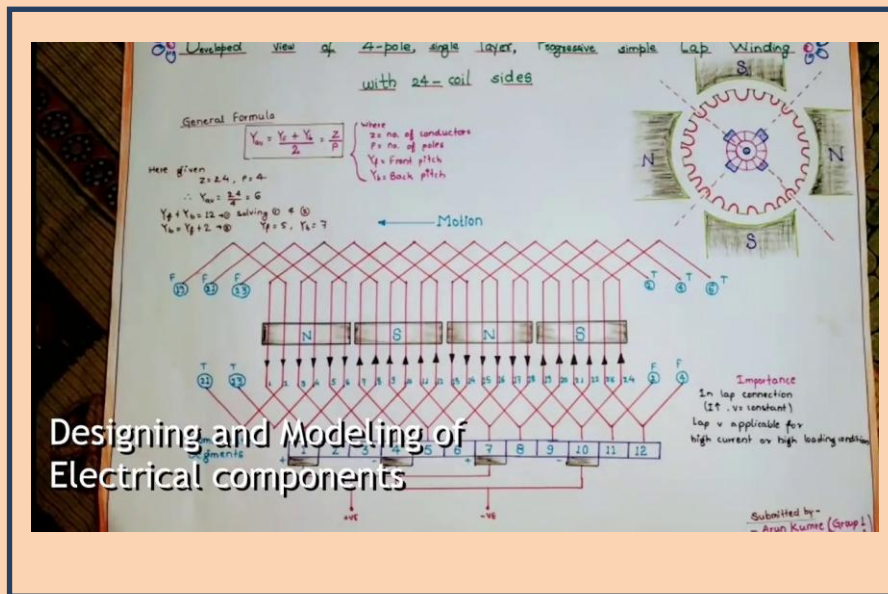 Developed View of 4-pole, single layer, Progressive simple Lap Winding
with 24-coil sides
General Formula
Yav = Yf + Yb / 2 = Z / P
Where
Z = no. of conductors
P = no. of poles
Yf = Front pitch
Yb = Back pitch
Here given
Z = 24, P = 4
∴ Yav = 24/4 = 6
Yf + Yb = 12 → ① solving ① & ②
Yb = Yf + 2 → ② Yf = 5, Yb = 7
Motion
S
N N
S
F F F T T T
19 21 23 2 4 6
N S N S
T T F F
21 23 2 4
1 2 3 4 5 6 7 8 9 10 11 12 13 14 15 16 17 18 19 20 21 22 23 24
Importance
In lap connection
(I↑, V = constant)
Lap v applicable for
high current or high loading condition
Segments 1 4 5 6 7 8 9 10 11 12
+ - + -
+ve -ve
Designing and Modeling of
Electrical components
Submitted by -
- Arun Kumre (Group